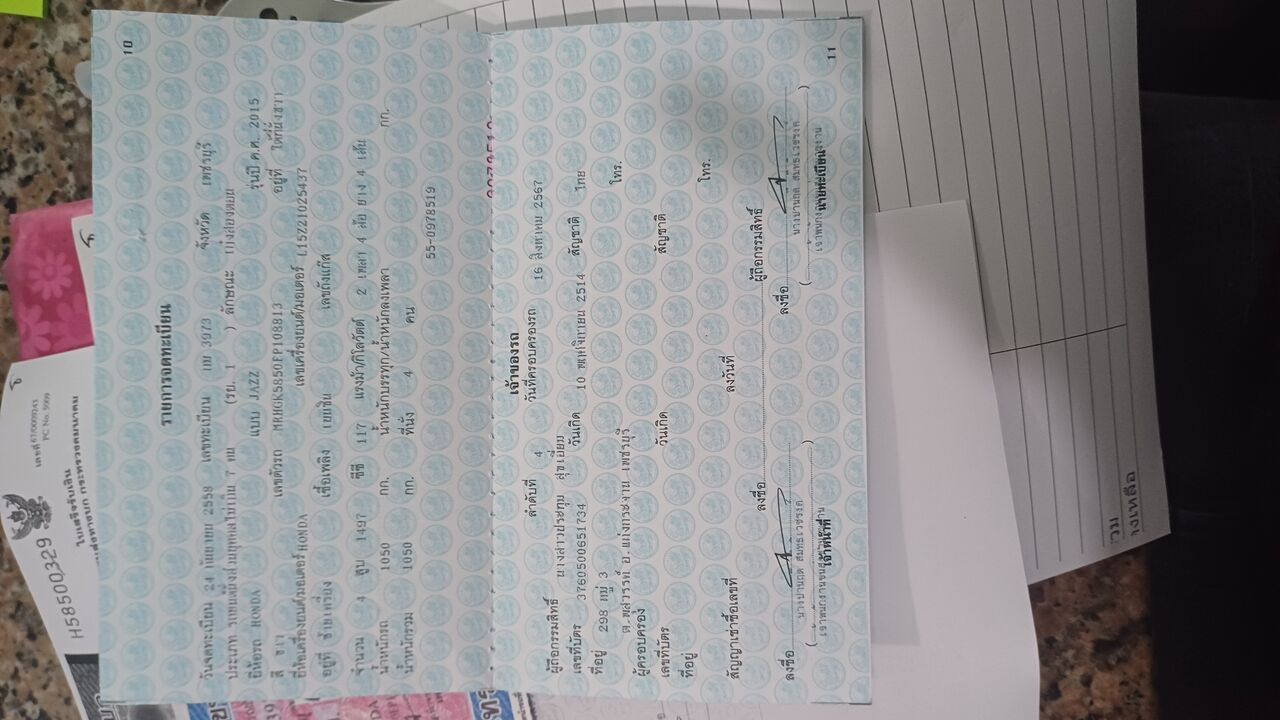 10
รายการจดทะเบียน
วันจดทะเบียน 24 กันยายน 2558 เลขทะเบียน กม 3973 จังหวัด เพชรบุรี
ประเภท รถยนต์นั่งส่วนบุคคลไม่เกิน 7 คน (รย. 1 ) ลักษณะ เก๋งสองตอน
ยี่ห้อรถ HONDA แบบ JAZZ รุ่นปี ค.ศ. 2015
สี ขาว เลขตัวรถ MRHGK5850FP108813 อยู่ที่ ใต้ที่นั่งขวา
ยี่ห้อเครื่องยนต์/มอเตอร์ HONDA เลขเครื่องยนต์/มอเตอร์ L15Z21025437
อยู่ที่ ซ้ายเครื่อง เชื้อเพลิง เบนซิน เลขถังแก๊ส
จำนวน 4 สูบ 1497 ซีซี 117 แรงม้า/กิโลวัตต์ 2 เพลา 4 ล้อ ยาง 4 เส้น
น้ำหนักรถ 1050 กก. น้ำหนักบรรทุก/น้ำหนักลงเพลา กก.
น้ำหนักรวม 1050 กก. ที่นั่ง 4 คน
55-0978519
เจ้าของรถ
ลำดับที่ 4 วันที่ครอบครองรถ 16 สิงหาคม 2567
ผู้ถือกรรมสิทธิ์ นางสาวประทุม สุขเอี่ยม
เลขที่บัตร 3760500651734 วันเกิด 10 พฤศจิกายน 2514 สัญชาติ ไทย
ที่อยู่ 298 หมู่ 3 โทร.
ต.พุสวรรค์ อ.แก่งกระจาน เพชรบุรี
ผู้ครอบครอง
เลขที่บัตร วันเกิด สัญชาติ
ที่อยู่ โทร.
สัญญาเช่าซื้อเลขที่ ลงวันที่
ลงชื่อ ผู้ถือกรรมสิทธิ์
ลงชื่อ ลงชื่อ
เจ้าหน้าที่ นายทะเบียน
11
เลขที่ 67/0009243
PC No. 5009
ใบเสร็จรับเงิน
กระทรวงคมนาคม
H58500329